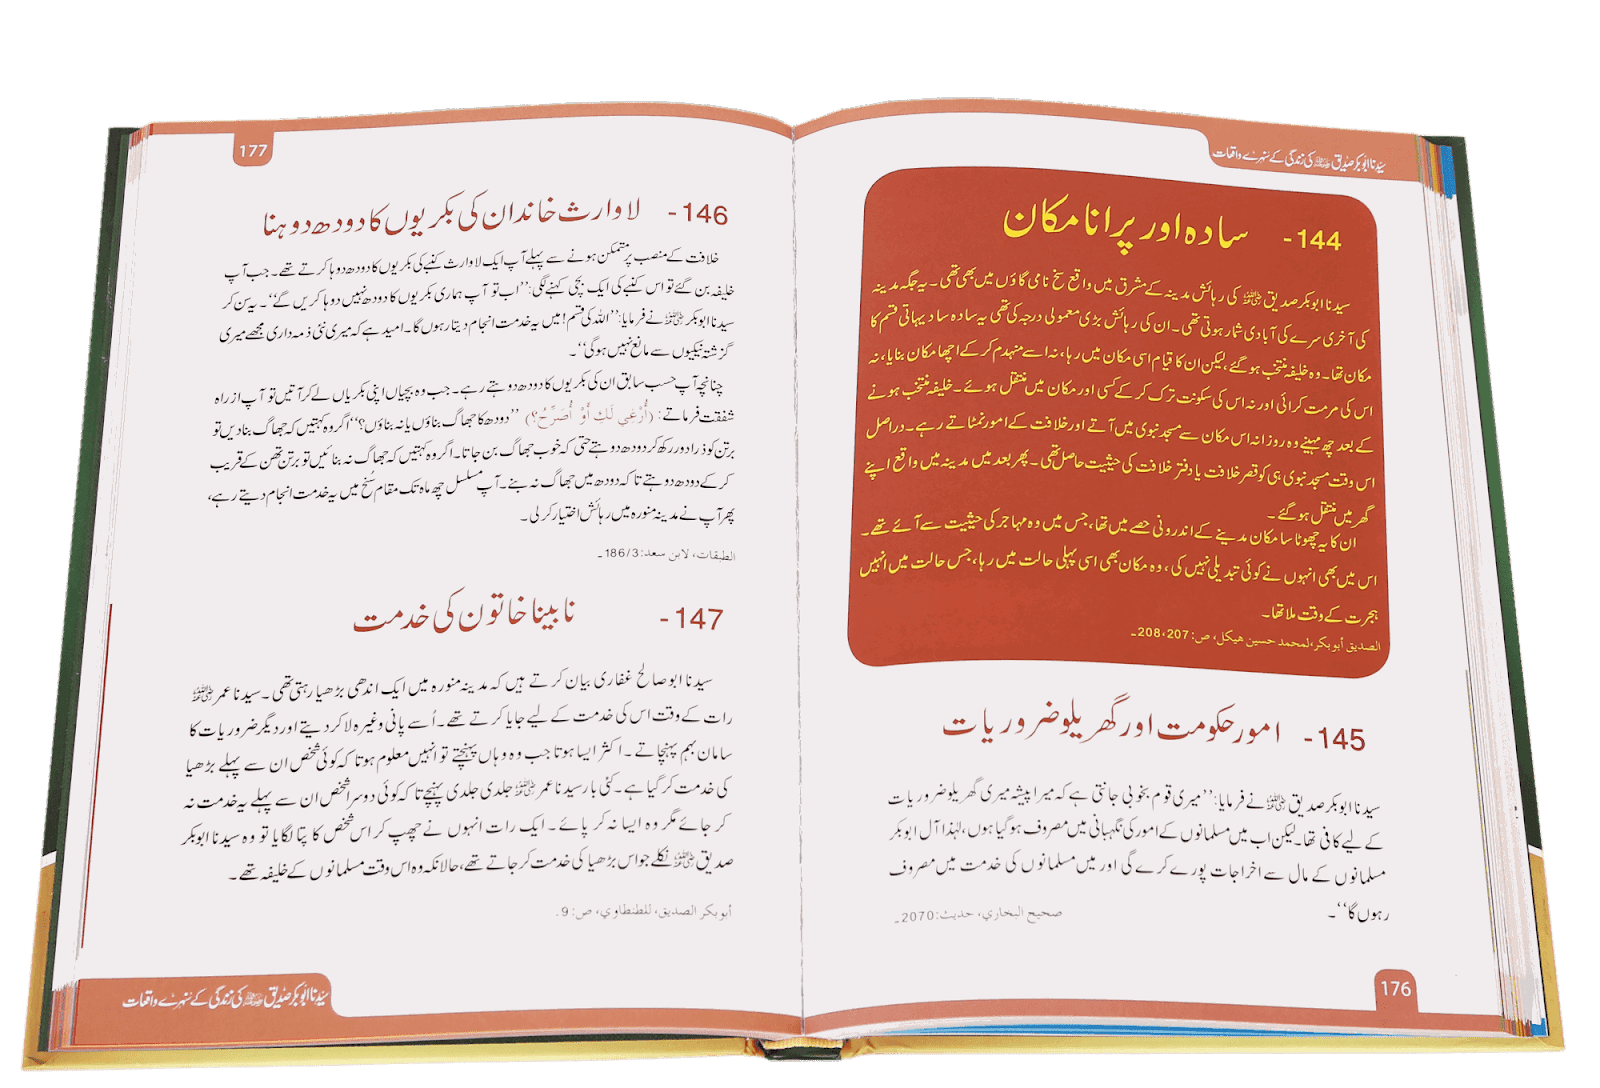 سیدنا ابوبکر صدیق ﷛ کی زندگی کے سنہرے واقعات
144- سادہ اور پرانا مکان
سیدنا ابوبکر صدیق ﷛ کی رہائش مدینہ کے مشرق میں واقع سخ نامی گاؤں میں بھی تھی۔ یہ جگہ مدینہ
کی آخری سرے کی آبادی شمار ہوتی تھی۔ ان کی رہائش بڑی معمولی درجہ کی تھی یہ سادہ سا دیہاتی قسم کا
مکان تھا۔ وہ خلیفہ منتخب ہو گئے، لیکن ان کا قیام اسی مکان میں رہا، نہ اسے منہدم کر کے اچھا مکان بنایا، نہ
اس کی مرمت کرائی اور نہ اس کی سکونت ترک کر کے کسی اور مکان میں منتقل ہوئے۔ خلیفہ منتخب ہونے
کے بعد چھ مہینے وہ روزانہ اس مکان سے مسجد نبوی میں آتے اور خلافت کے امور نمٹاتے رہے۔ دراصل
اس وقت مسجد نبوی ہی کو قصر خلافت یا دفتر خلافت کی حیثیت حاصل تھی۔ پھر بعد میں مدینہ میں واقع اپنے
گھر میں منتقل ہو گئے۔
ان کا یہ چھوٹا سا مکان مدینے کے اندرونی حصے میں تھا، جس میں وہ مہاجر کی حیثیت سے آئے تھے۔
اس میں بھی انہوں نے کوئی تبدیلی نہیں کی، وہ مکان بھی اسی پہلی حالت میں رہا، جس حالت میں انہیں
ہجرت کے وقت ملا تھا۔
الصديق أبوبكر، لمحمد حسين هيكل، ص: 207، 208۔
145- امور حکومت اور گھریلو ضروریات
سیدنا ابوبکر صدیق ﷛ نے فرمایا: ’’میری قوم بخوبی جانتی ہے کہ میرا پیشہ میری گھریلو ضروریات
کے لیے کافی تھا۔ لیکن اب میں مسلمانوں کے امور کی نگہبانی میں مصروف ہو گیا ہوں، لہٰذا آل ابوبکر
مسلمانوں کے مال سے اخراجات پورے کرے گی اور میں مسلمانوں کی خدمت میں مصروف
رہوں گا‘‘۔
صحيح البخاري، حديث: 2070۔
176
177
146- لاوارث خاندان کی بکریوں کا دودھ دوہنا
خلافت کے منصب پر متمکن ہونے سے پہلے آپ ایک لاوارث کنبے کی بکریوں کا دودھ دوہا کرتے تھے۔ جب آپ
خلیفہ بن گئے تو اس کنبے کی ایک بچی کہنے لگی: ’’اب تو آپ ہماری بکریوں کا دودھ نہیں دوہا کریں گے‘‘۔ یہ سن کر
سیدنا ابوبکر ﷛ نے فرمایا: ’’اللہ کی قسم! میں یہ خدمت انجام دیتا رہوں گا۔ امید ہے کہ میری نئی ذمہ داری مجھے میری
گزشتہ نیکیوں سے مانع نہیں ہوگی‘‘۔
چنانچہ آپ حسب سابق ان کی بکریوں کا دودھ دوہتے رہے۔ جب وہ بچیاں اپنی بکریاں لے کر آتیں تو آپ از راہ
شفقت فرماتے: (أُرْغِي لَكِ أَوْ أُصَرِّحُ؟) ’’دودھ کا جھاگ بناؤں یا نہ بناؤں؟‘‘ اگر وہ کہتیں کہ جھاگ بنا دیں تو
برتن کو ذرا دور رکھ کر دودھ دوہتے حتیٰ کہ خوب جھاگ بن جاتا۔ اگر وہ کہتیں کہ جھاگ نہ بنائیں تو برتن تھن کے قریب
کر کے دودھ دوہتے تاکہ دودھ میں جھاگ نہ بنے۔ آپ مسلسل چھ ماہ تک مقام سُنح میں یہ خدمت انجام دیتے رہے،
پھر آپ نے مدینہ منورہ میں رہائش اختیار کر لی۔
الطبقات، لابن سعد: 186/3۔
147- نابینا خاتون کی خدمت
سیدنا ابو صالح غفاری بیان کرتے ہیں کہ مدینہ منورہ میں ایک اندھی بڑھیا رہتی تھی۔ سیدنا عمر ﷛
رات کے وقت اس کی خدمت کے لیے جایا کرتے تھے۔ اُسے پانی وغیرہ لا کر دیتے اور دیگر ضروریات کا
سامان بہم پہنچاتے۔ اکثر ایسا ہوتا جب وہ وہاں پہنچتے تو انہیں معلوم ہوتا کہ کوئی شخص ان سے پہلے بڑھیا
کی خدمت کر گیا ہے۔ کئی بار سیدنا عمر ﷛ جلدی جلدی پہنچے تاکہ کوئی دوسرا شخص ان سے پہلے یہ خدمت نہ
کر جائے مگر وہ ایسا نہ کر پائے۔ ایک رات انہوں نے چھپ کر اس شخص کا پتا لگایا تو وہ سیدنا ابوبکر
صدیق ﷛ نکلے جو اس بڑھیا کی خدمت کر جاتے تھے، حالانکہ وہ اس وقت مسلمانوں کے خلیفہ تھے۔
أبوبكر الصديق، للطنطاوي، ص: 9۔
سیدنا ابوبکر صدیق ﷛ کی زندگی کے سنہرے واقعات